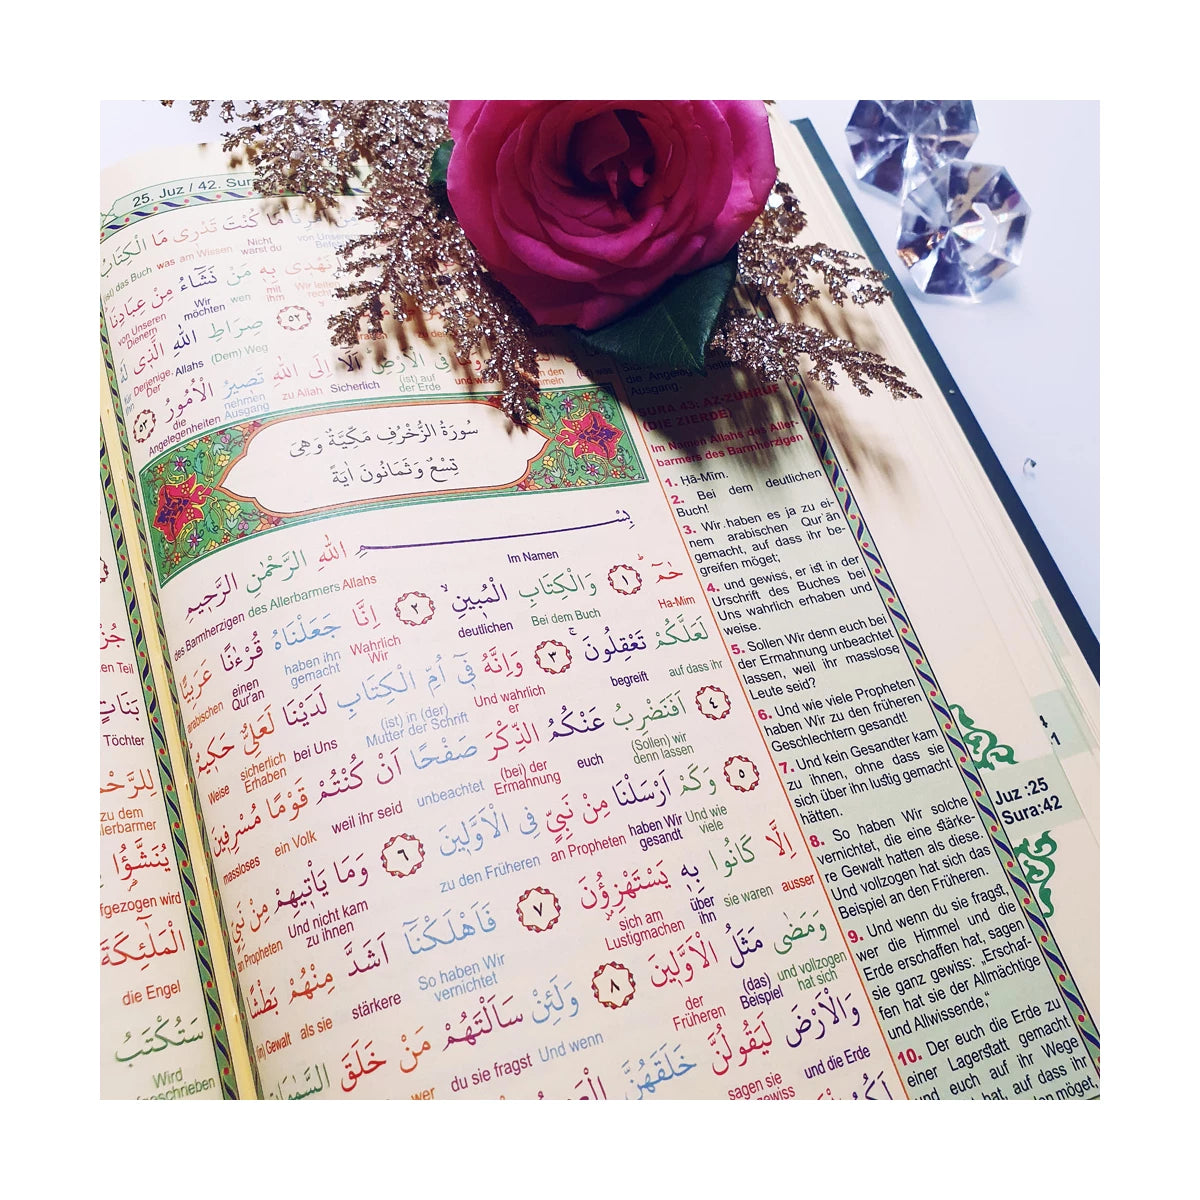 25. Juz / 42. Sura
مَا كُنْتَ تَدْرِى مَا الْكِتَابُ
von Unseren
Nicht warst du
am Wissen
was
das Buch
(ist)
نَهْدِى بِهٖ مَنْ نَشَٓاءُ مِنْ عِبَادِنَا
Wir leiten
mit ihm
wen
Wir möchten
von Unseren Dienern
صِرَاطِ اللّٰهِ الَّذٖى
(Dem) Weg
Allahs
Derjenige, Der
فِى الْاَرْضِ اَلَٓا اِلَى اللّٰهِ تَصٖيرُ الْاُمُورُ
(ist) auf der Erde
Sicherlich
zu Allah
nehmen Ausgang
die Angelegenheiten
٥٣
سُورَةُ الزُّخْرُفِ مَكِّيَّةٌ وَهِىَ
تِسْعٌ وَثَمَانُونَ اٰيَةً
بِسْمِ اللّٰهِ الرَّحْمٰنِ الرَّحٖيمِ
Im Namen
Allahs
des Allerbarmers
des Barmherzigen
حٰمٓ ١ وَالْكِتَابِ الْمُبٖينِ ٢ اِنَّا جَعَلْنَاهُ قُرْءٰنًا عَرَبِيًّا
Ha-Mim
Bei dem Buch
deutlichen
Wahrlich Wir
haben ihn gemacht
einen Qur'an
arabischen
لَعَلَّكُمْ تَعْقِلُونَ ٣ وَاِنَّهُ فٖٓى اُمِّ الْكِتَابِ لَدَيْنَا لَعَلِىٌّ حَكٖيمٌ
auf dass ihr
begreift
Und wahrlich er
(ist) in (der)
Mutter der Schrift
bei Uns
sicherlich Erhaben
Weise
٤ اَفَنَضْرِبُ عَنْكُمُ الذِّكْرَ صَفْحًا اَنْ كُنْتُمْ قَوْمًا مُسْرِفٖينَ
(Sollen) wir denn lassen
euch
(bei) der Ermahnung
unbeachtet
weil ihr seid
ein Volk
massloses
٥ وَكَمْ اَرْسَلْنَا مِنْ نَبِىٍّ فِى الْاَوَّلٖينَ ٦ وَمَا يَاْتٖيهِمْ مِنْ نَبِىٍّ
Und wie viele
haben Wir gesandt
an Propheten
zu den Früheren
Und nicht kam zu ihnen
an Propheten
اِلَّا كَانُوا بِهٖ يَسْتَهْزِؤُنَ ٧ فَاَهْلَكْنَٓا اَشَدَّ مِنْهُمْ بَطْشًا
ausser
sie waren
über ihn
sich am Lustigmachen
So haben Wir vernichtet
stärkere
als sie
(in) Gewalt
وَمَضٰى مَثَلُ الْاَوَّلٖينَ ٨ وَلَئِنْ سَاَلْتَهُمْ مَنْ خَلَقَ
und vollzogen hat sich
(das) Beispiel
der Früheren
Und wenn
du sie fragst
wer
وَالْاَرْضَ لَيَقُولُنَّ خَلَقَهُنَّ
und die Erde
sagen sie
SURA 43: AZ-ZUHRUF
(DIE ZIERDE)
Im Namen Allahs des Aller-
barmers des Barmherzigen
1. Hā-Mīm.
2. Bei dem deutlichen
Buch!
3. Wir haben es ja zu ei-
nem arabischen Qur'ān
gemacht, auf dass ihr be-
greifen möget;
4. und gewiss, er ist in der
Urschrift des Buches bei
Uns wahrlich erhaben und
weise.
5. Sollen Wir denn euch bei
der Ermahnung unbeachtet
lassen, weil ihr masslose
Leute seid?
6. Und wie viele Propheten
haben Wir zu den früheren
Geschlechtern gesandt!
7. Und kein Gesandter kam
zu ihnen, ohne dass sie
sich über ihn lustig gemacht
hätten.
8. So haben Wir solche
vernichtet, die eine stärke-
re Gewalt hatten als diese.
Und vollzogen hat sich das
Beispiel an den Früheren.
9. Und wenn du sie fragst,
wer die Himmel und die
Erde erschaffen hat, sagen
sie ganz gewiss: „Erschaf-
fen hat sie der Allmächtige
und Allwissende,“
10. Der euch die Erde zu
einer Lagerstatt gemacht
und euch auf ihr Wege
hat, auf dass ihr
möget,
Juz :25
Sura:42
en Teil
بَنَاتٍ
Töchter
zu dem
يُنَشَّؤُا
fgezogen wird
الْمَلٰٓئِكَةَ
die Engel
سَتُكْتَبُ
Wird